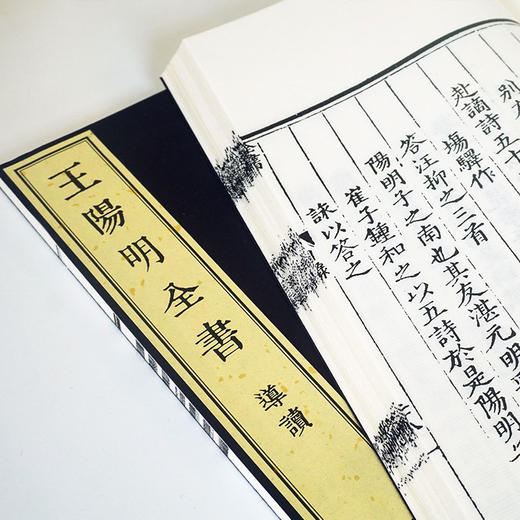 王陽明全書
導讀
別友
赴謫詩五十
塲驛作
答汪抑之三首
陽明子之南也其友湛元明
崔子鍾和之以五詩於是陽明
詠以答之